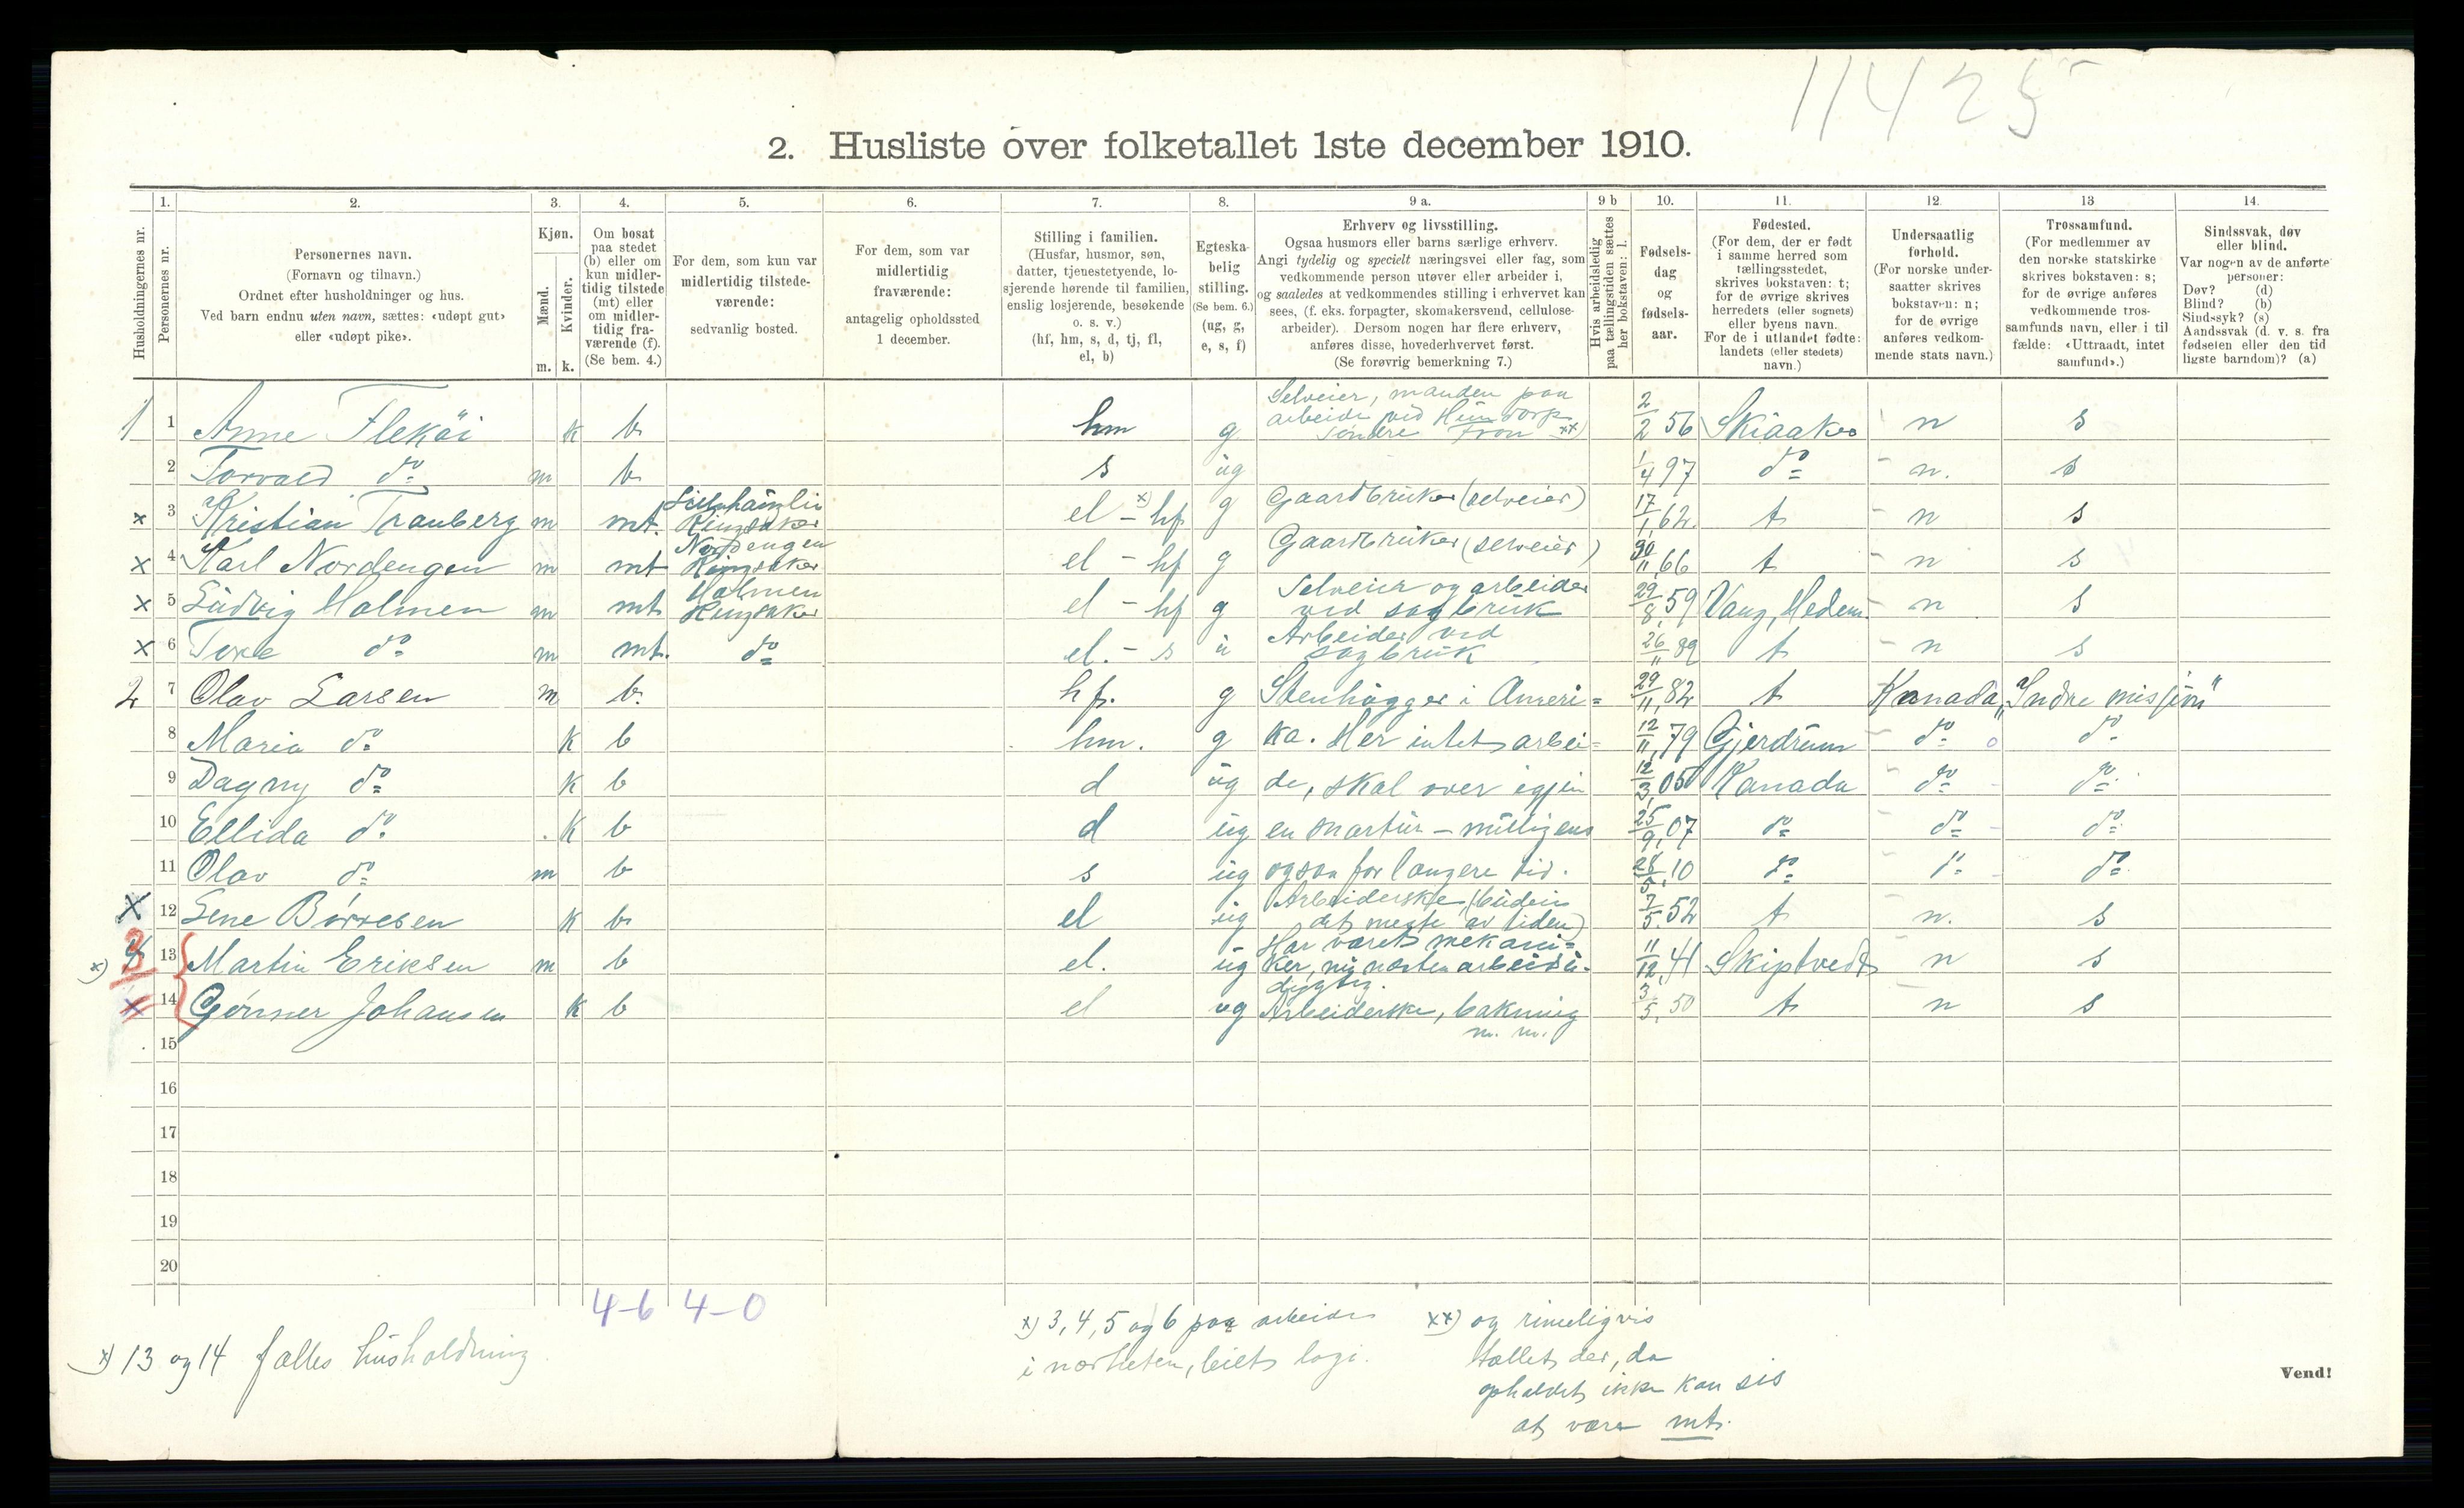 11425
2. Husliste over folketallet 1ste december 1910.
1. 2. 3. 4. 5. 6. 7. 8. 9 a. 9 b 10. 11. 12. 13 14.
Husholdningernes nr.
Personernes nr.
Personernes navn.
(Fornavn og tilnavn.)
Ordnet efter husholdninger og hus.
Ved barn endnu uten navn, sættes: «udøpt gut»
eller «udøpt pike».
Kjøn.
Mænd.
Kvinder.
m. k.
Om bosat
paa stedet
(b) eller om
kun midler-
tidig tilstede
(mt) eller
om midler-
tidig fra-
værende (f).
(Se bem. 4.)
For dem, som kun var
midlertidig tilstede-
værende:
sedvanlig bosted.
For dem, som var
midlertidig
fraværende:
antagelig opholdssted
1 december.
Stilling i familien.
(Husfar, husmor, søn,
datter, tjenestetyende, lo-
sjerende hørende til familien,
enslig losjerende, besøkende
o. s. v.)
(hf, hm, s, d, tj, fl,
el, b)
Egteska-
belig
stilling.
(Se bem. 6.)
(ug, g,
e, s, f)
Erhverv og livsstilling.
Ogsaa husmors eller barns særlige erhverv.
Angi tydelig og specielt næringsvei eller fag, som
vedkommende person utøver eller arbeider i,
og saaledes at vedkommendes stilling i erhvervet kan
sees, (f. eks. forpagter, skomakersvend, cellulose-
arbeider). Dersom nogen har flere erhverv,
anføres disse, hovederhvervet først.
(Se forøvrig bemerkning 7.)
Hvis arbeidsledig
paa tællingstiden sættes
her bokstaven: l.
Fødsels-
dag
og
fødsels-
aar.
Fødested.
(For dem, der er født
i samme herred som
tællingsstedet,
skrives bokstaven: t;
for de øvrige skrives
herredets (eller sognets)
eller byens navn.
For de i utlandet fødte:
landets (eller stedets)
navn.)
Undersaatlig
forhold.
(For norske under-
saatter skrives
bokstaven: n;
for de øvrige
anføres vedkom-
mende stats navn.)
Trossamfund.
(For medlemmer av
den norske statskirke
skrives bokstaven: s;
for de øvrige anføres
vedkommende tros-
samfunds navn, eller i til
fælde: «Uttraadt, intet
samfund».)
Sindssvak, døv
eller blind.
Var nogen av de anførte
personer:
Døv? (d)
Blind? (b)
Sindssyk? (s)
Aandssvak (d. v. s. fra
fødselen eller den tid
ligste barndom)? (a)
1 1 Anne Flekøi k b hm g Selveier, manden paa arbeide ved Hundorp Søndre Fron xx) 2/2 56 Skiaaker n s
2 Torvald do m b s ug 1/4 97 do n. s
x 3 Kristian Tranberg m mt. Ringsaker el x) - hf g Gaardbruker (selveier) 17/1 62. t n s
x 4 Karl Nordengen m mt Nordengen Ringsaker el - hf g Gaardbruker (selveier) 30/11 66 t n s
x 5 Ludvig Holmen m mt Holmen Ringsaker el - hf g Selveier og arbeider ved sagbruk 29/8 59 Vang, Hedem. n s
x 6 Tore do m mt. do el. - s u Arbeider ved sagbruk 26/11 89 t n s
2 7 Olav Larsen m b. hf. g Stenhugger i Ameri= 29/11 82 t Kanada "Indre misjon"
8 Maria do k b hm. g ka. Her intet arbei= 12/11 79 Gjerdrum do do
9 Dagny do k b d ug de, skal over igjen 12/3 05 Kanada do do
10 Ellida do k b d ug en snartur - muligens 25/9 07 do do do
11 Olav do m b s ug ogsaa for længere tid. 28/5 10 do do do
x 12 Lene Børresen k b el ug Arbeiderske, (budeie det meste av tiden) 7/5 52 t n. s
x) 3 13 Martin Eriksen m b el. ug Har været mekani= ker, nu næsten arbeidsu- dygtig. 11/12 41 Skiptvedt n s
x 14 Gunner Johansen k b el ug Arbeiderske, bakning m. m. 3/5 50 t n s
15
16
17
18
19
20
4-6 4-0
x) 13 og 14 fælles husholdning.
x) 3, 4, 5 og 6 paa arbeide
i nærheten, leiet logi.
xx) og rimeligvis
tællet der, da
opholdet ikke kan sis
at være mt.
Vend!